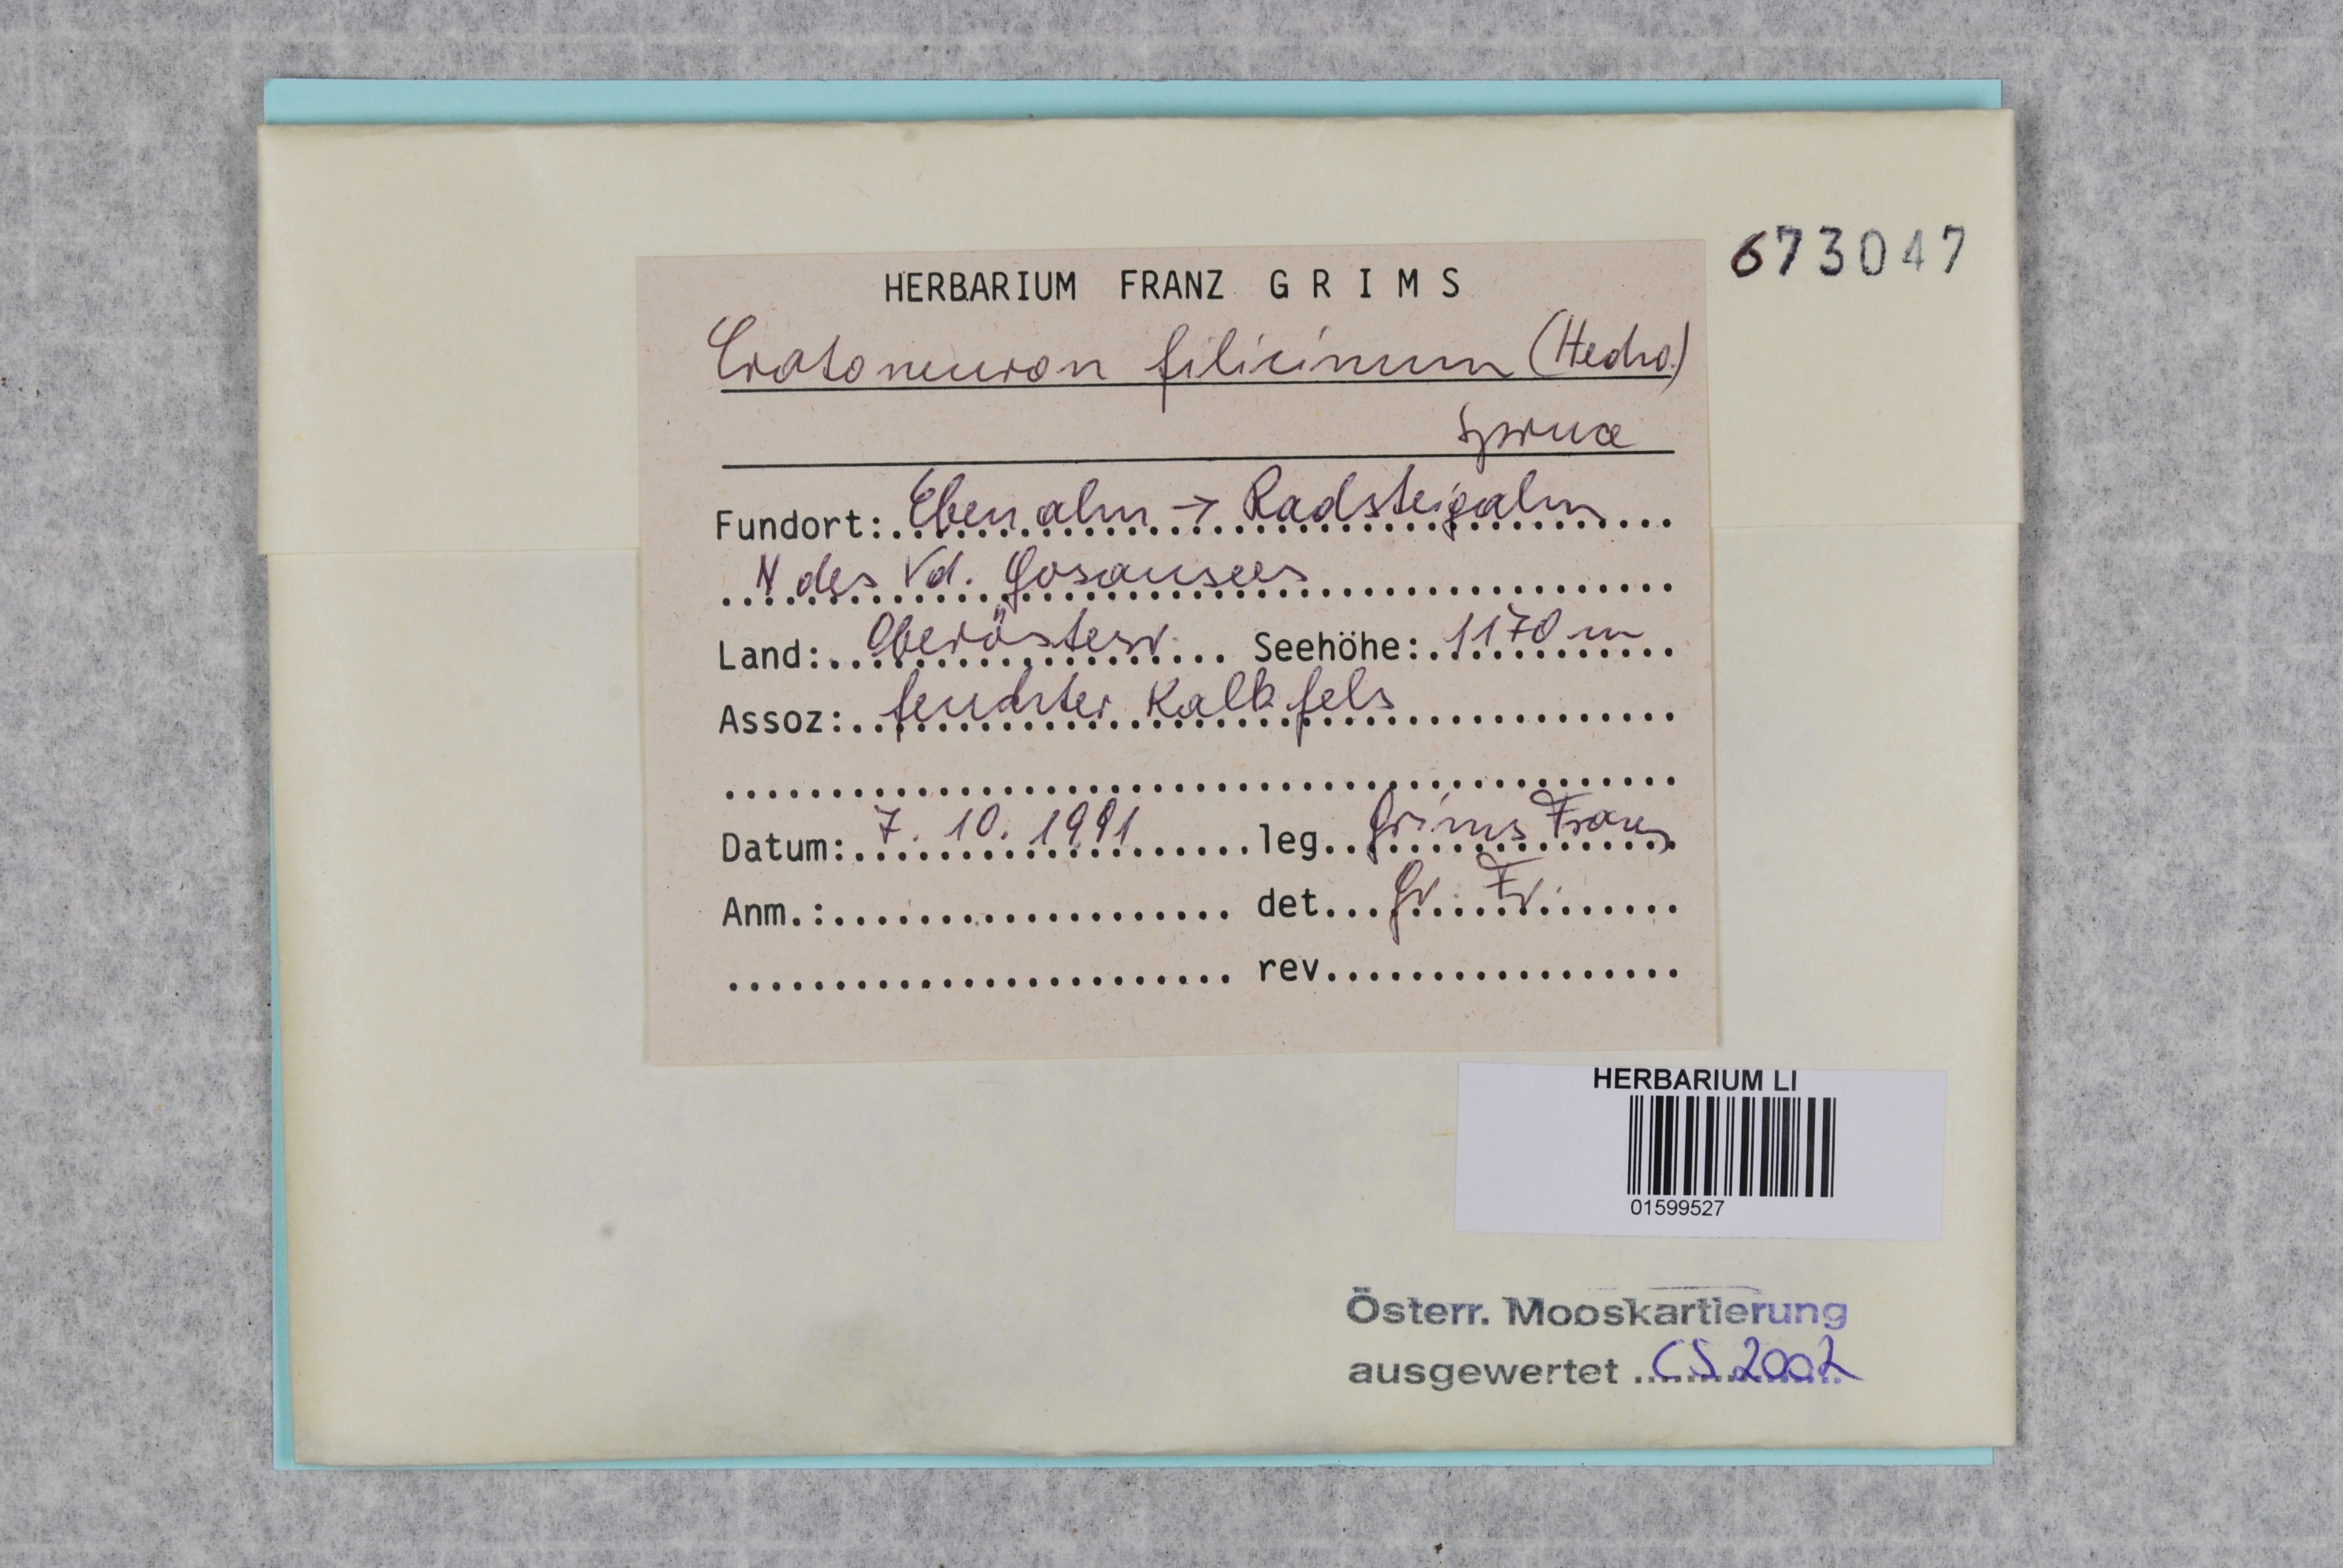 673047
HERBARIUM FRANZ GRIMS
Cratoneuron filicinum (Hedw.)
Spruce
Fundort: Ebenalm → Radsteigalm
N des Vd. Gosausees
Land: Oberösterr. Seehöhe: 1170 m
Assoz: feuchter Kalkfels
Datum: 7. 10. 1991 leg. Grims Franz
Anm.: det. Gr. Fr.
rev.
HERBARIUM LI
01599527
Österr. Mooskartierung
ausgewertet CS 2002